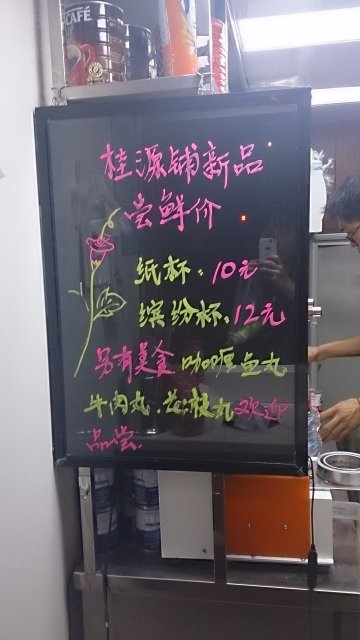 NESCAFÉ
桂源铺新品
尝鲜价
纸杯：10元
缤纷杯：12元
另有美食 咖喱鱼丸
牛肉丸．花枝丸欢迎
品尝.